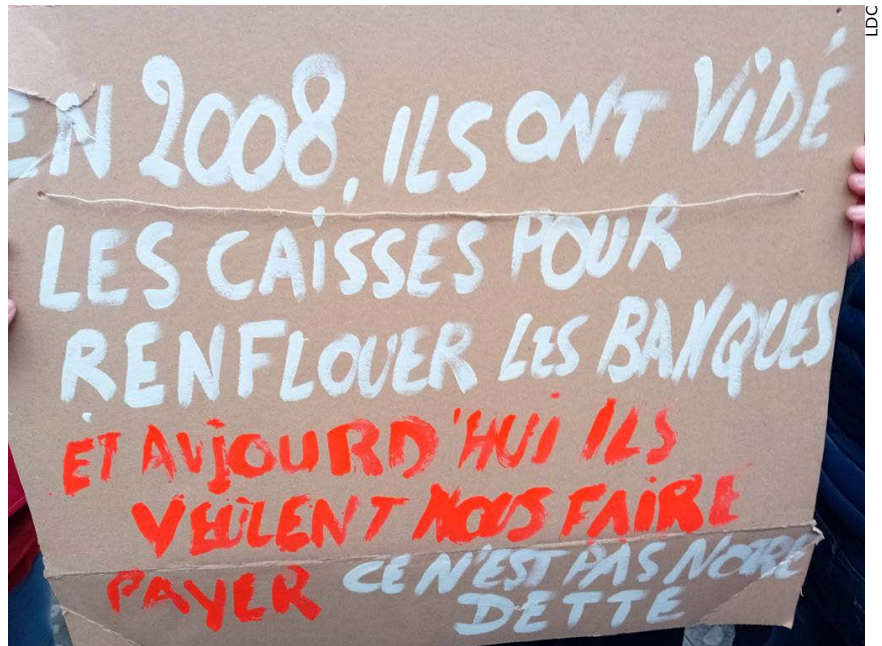 EN 2008, ILS ONT VIDÉ
LES CAISSES POUR
RENFLOUER LES BANQUES
ET AUJOURD'HUI ILS
VEULENT NOUS FAIRE
PAYER CE N'EST PAS NOTRE
DETTE
LDC